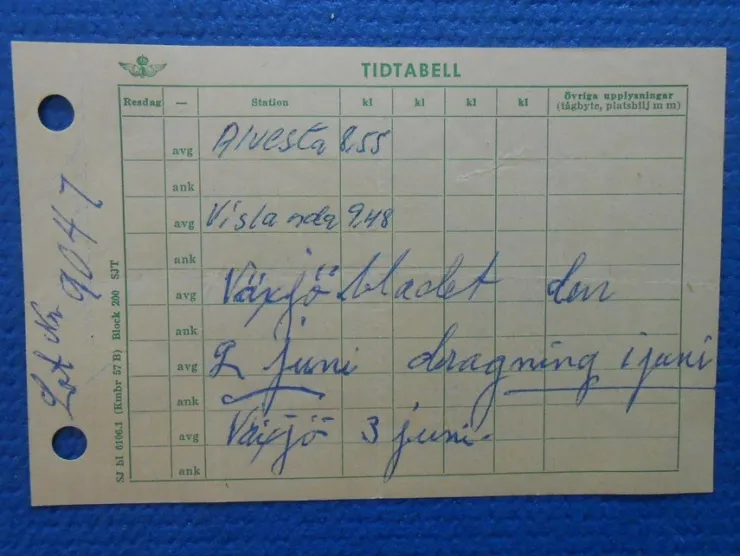 TIDTABELL
Resdag — Station kl kl kl kl Övriga upplysningar
(tågbyte, platsbilj m m)
avg Alvesta 8,55
ank
avg Vislanda 9,48
ank
avg Växjöbladet den
ank
avg 2 juni dragning i juni
ank
avg Växjö 3 juni.
ank
Lot Nr 9047
SJ bl 6106.1 (Kmbr 57 B) Block 200 SJT